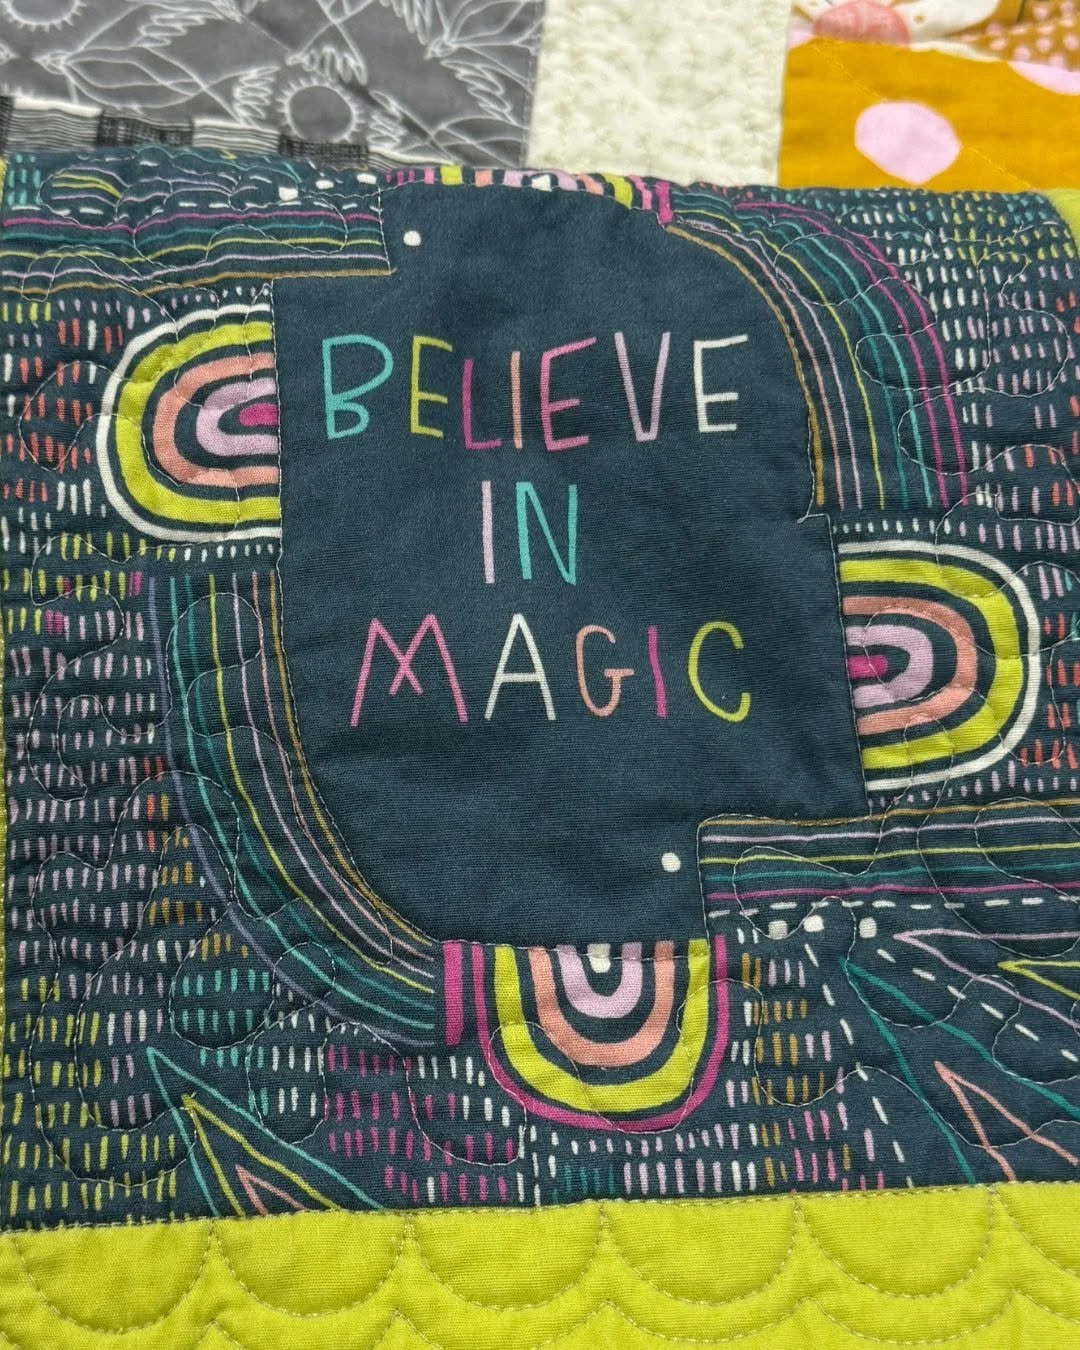 BELIEVE
IN
MAGIC